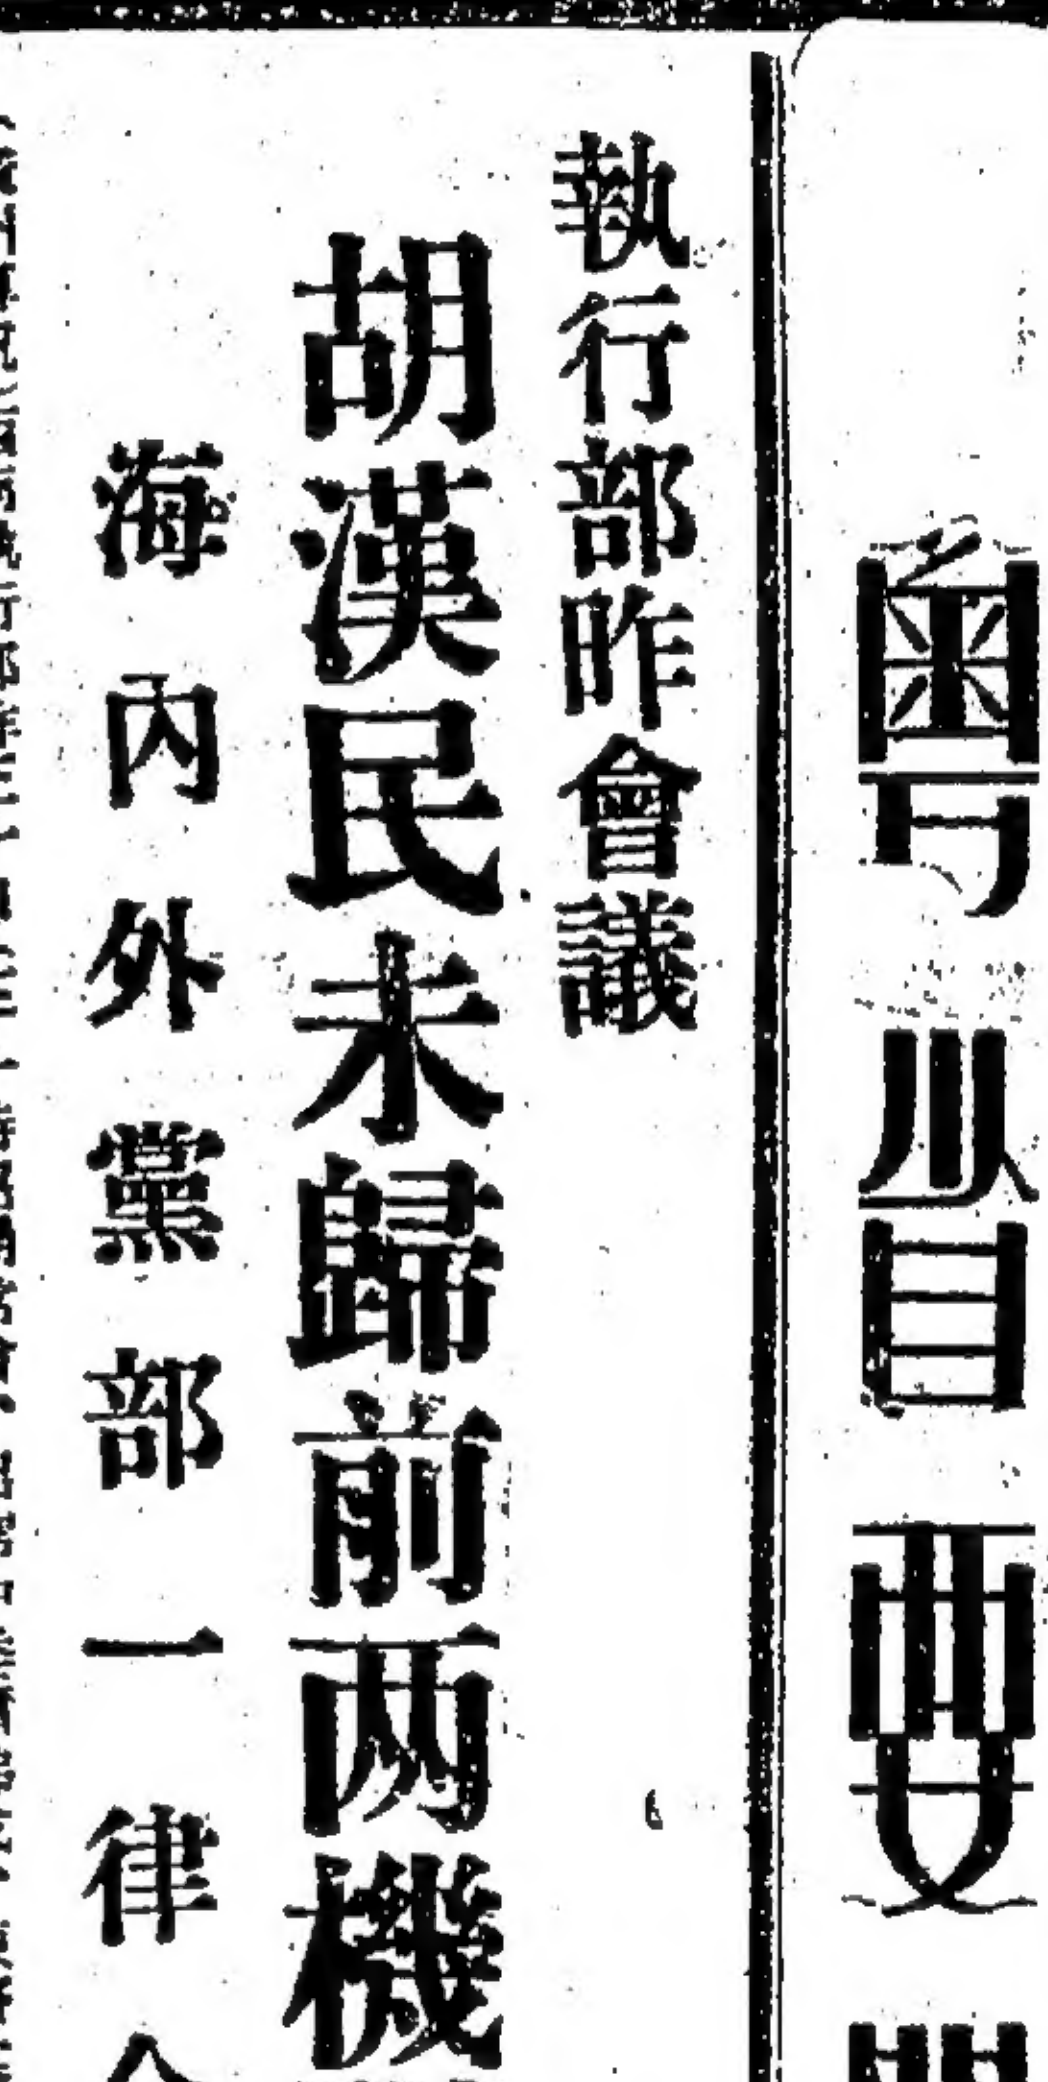 粵省要
執行部昨會議
胡漢民未歸前兩機
海內外黨部一律